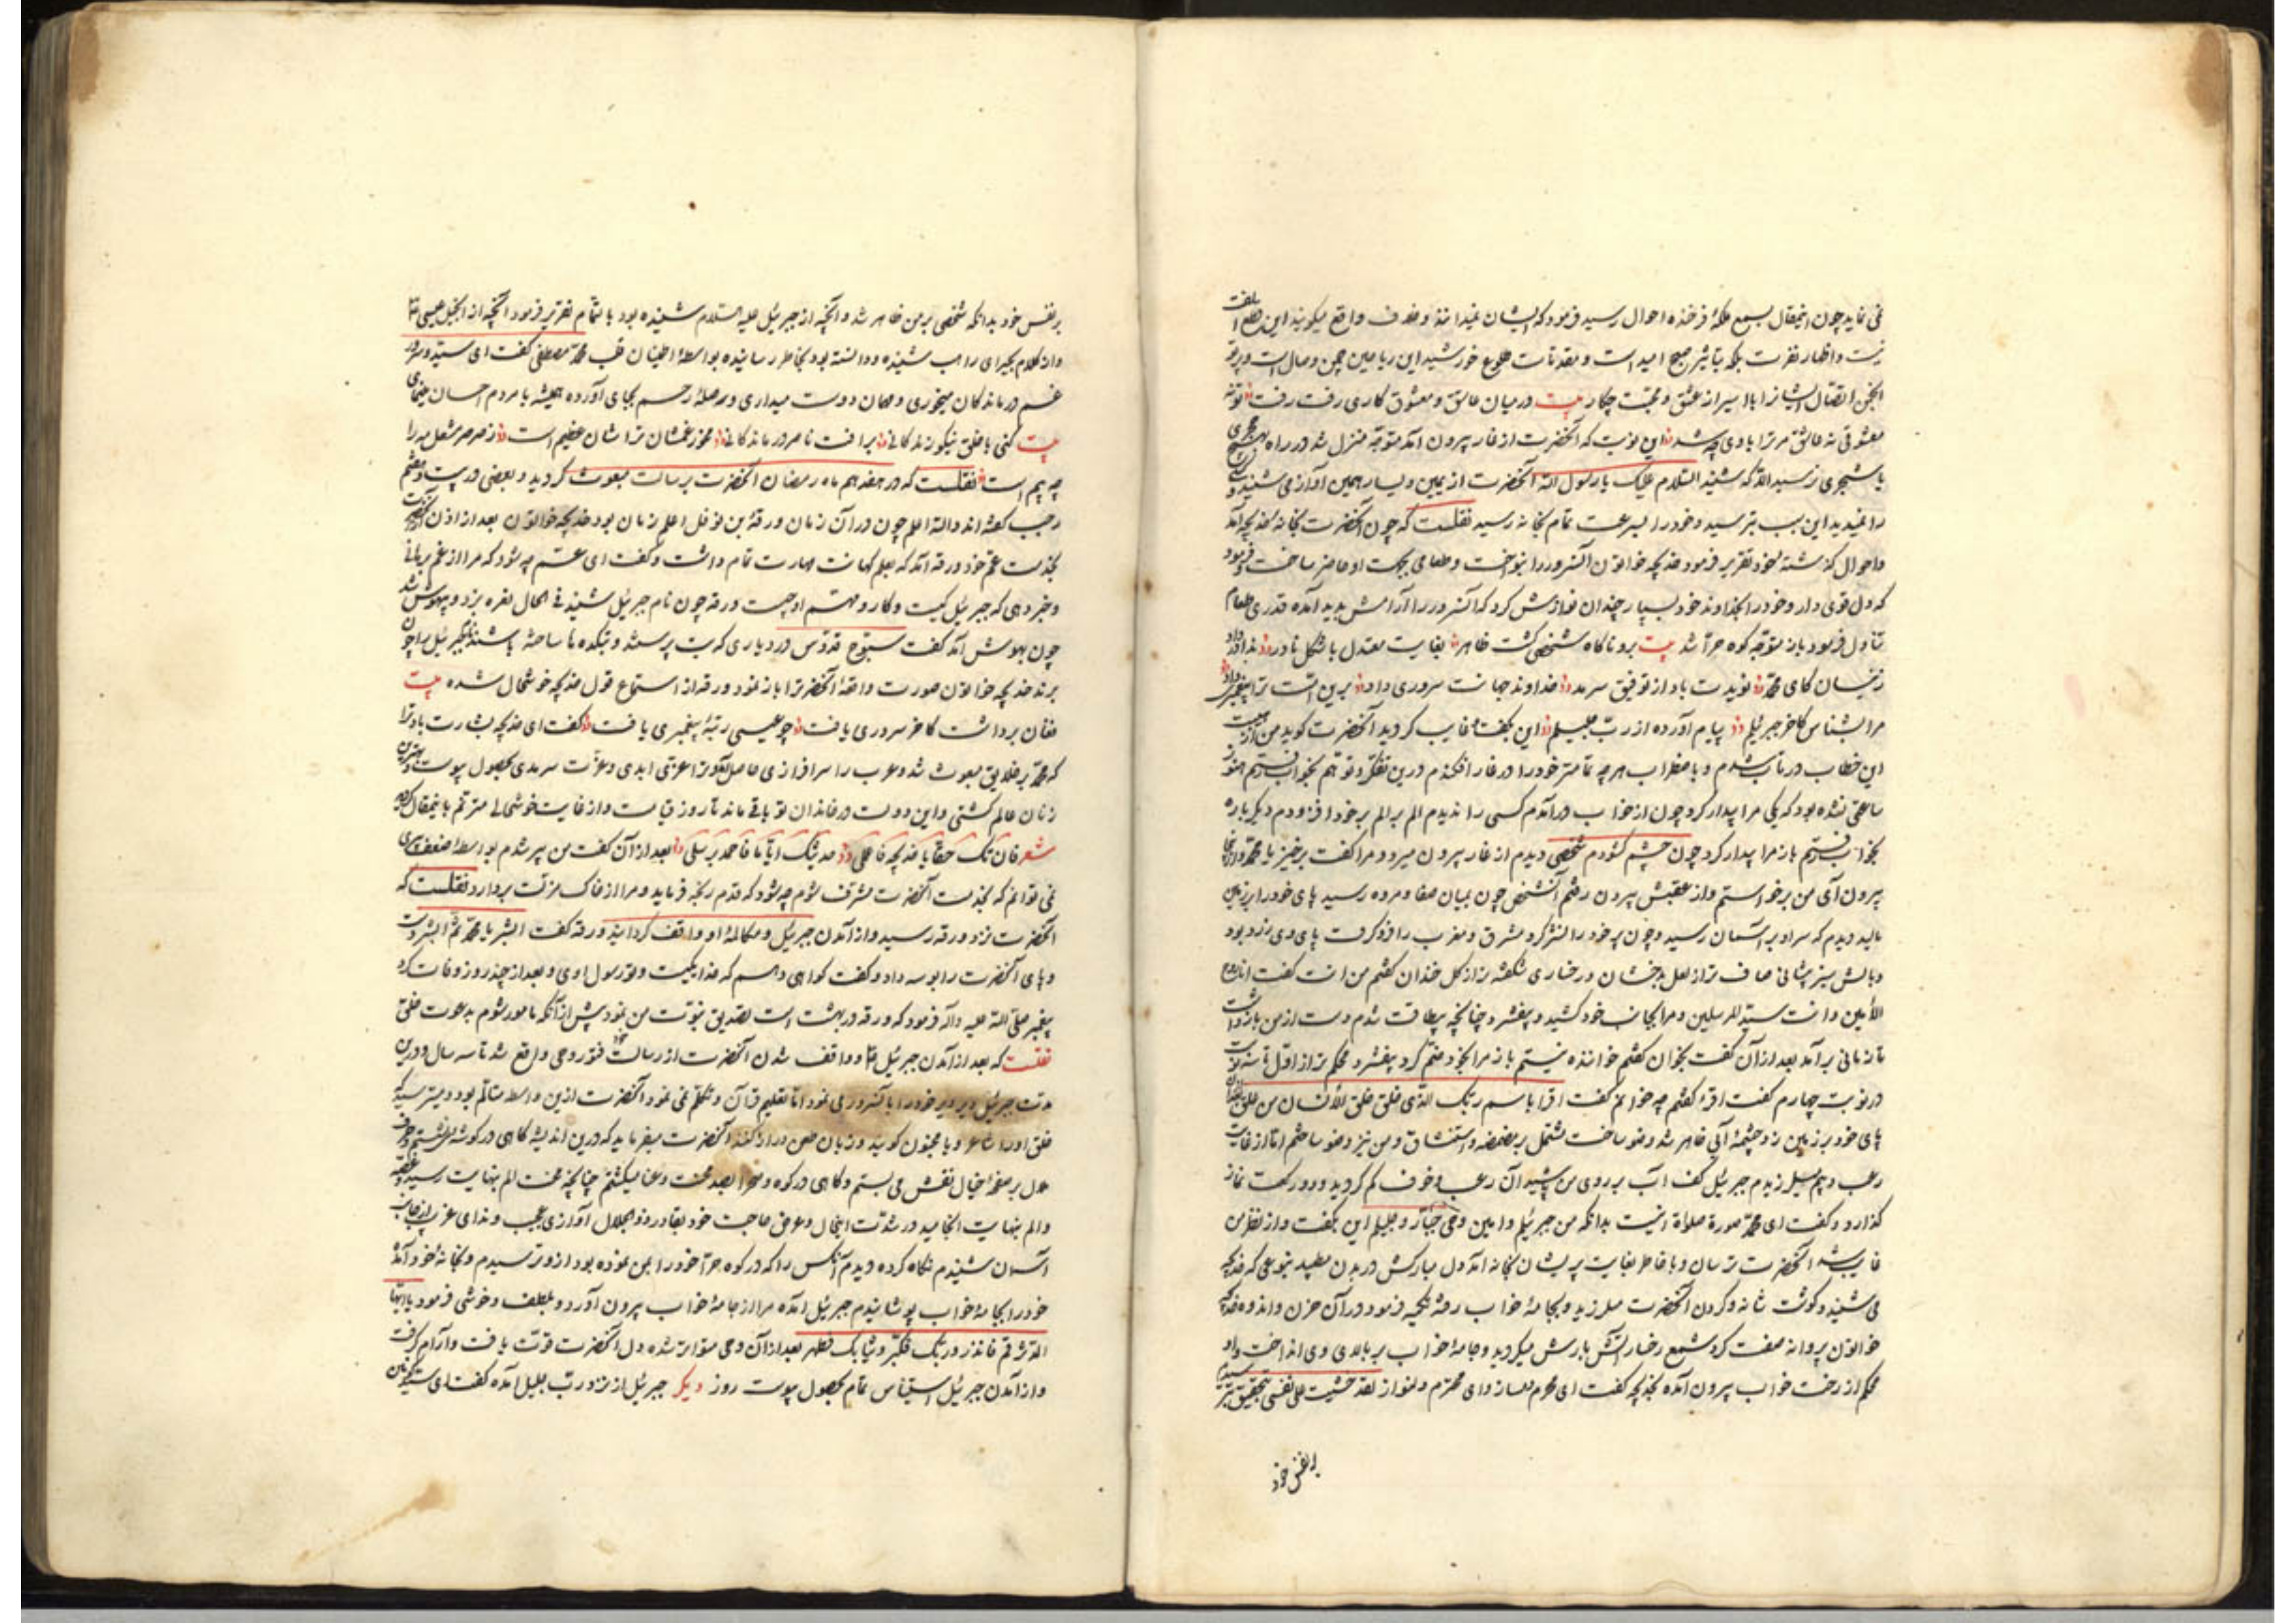 نمی نماید چون اینمقال بسمع ملکهٔ فرخنده احوال رسید فرمود که ایشان نمیدانند وخلاف واقع میکویند این قطع الفت
نیست واظهار نفرت بلکه تباشیر صبح امید است و مقدمات طلوع خورشید این ریاحین چمن وصال است وپرتو
انجمن اتصال ایشانرا با اسیران عشق و محبت چکار بیت درمیان عاشق و معشوق کاری رفت رفت تو نه
معشوقی نه عاشق مر ترا با وی چه شد این نوبت که آنحضرت از غار بیرون آمد متوجه منزل شد در راه بهیچ حجری
یا شجری نرسید الا که شنید السلام علیک یا رسول الله آنحضرت از یمین و یسار همین آواز می شنید و کسی
را نمیدید این سبب بترسید وخود را بسرعت تمام بخانه رسید نقلست که چون آنحضرت بخانه خدیجه آمد
واحوال گذشته بخود تقریر فرمود خدیجه خواتون آنسرور را بنواخت و طعامی بجهت او حاضر ساخت وفرمود
که دل قوی دار وخود را بخداوند خود بسپار چندان نوازش کرد که آنسرور را آرامش پدید آمده قدری طعام
تناول فرمود باز متوجه کوه حرا شد بیت برو ناکاه شخصی گشت ظاهر بغایت معتدل با شکل نادر ندا در داد
زینسان کای محمد نویدت باد از توفیق سرمد خداوند جهانت سروری داد برین امت ترا پیغمبری داد
مرا بشناس کاخر جبرئیلم پیام آورده از رب جلیلم این بگفت و غایب کردید آنحضرت کوید من از هیبت
این خطاب در تاب شدم و باضطراب هر چه تمامتر خود را در غار افکندم درین تفکر و توهم بخواب رفتم هنوز
ساعتی نشده بود که یکی مرا بیدار کرد چون از خواب درآمدم کسی را ندیدم الم بر الم بر خود افزودم دیگر باره
بخواب رفتم باز مرا بیدار کرد چون چشم کشودم شخصی دیدم از غار بیرون میرود مرا کفت برخیز یا محمد و از اینجا
بیرون آی من برخواستم واز عقبش بیرون رفتم آنشخص چون بمیان صفا و مروه رسید پای خود را بر زمین
مالید دیدم که سر او بر آسمان رسید وچون پر خود را نشر کرد مشرق و مغرب را فرو کرفت پای وی زرد بود
وبالش سبز پیشانی صاف تر از لعل بدخشان و رخساری شکفته تر از کل خندان کفتم من انت کفت انا روح
الامین وانت سید المرسلین ومرا بجانب خود کشید و بیفشرد چنانچه بیطاقت شدم دست از من بازداشت
تا زمانی برآمد بعد از آن کفت بخوان کفتم خواننده نیستم باز مرا بخود منضم کرد بیفشرد محکم تر از اول تا سه نوبت
در نوبت چهارم کفت اقرا کفتم چه خوانم کفت اقرا باسم ربک الذی خلق خلق الانسان من علق
پای خود بر زمین زد چشمهٔ آبی ظاهر شد وضو ساخت مشتمل بر مضمضه و استنشاق و من نیز وضو ساختم اما از غایت
رعب و بیم میلرزیدم جبرئیل کف آب بر روی من پاشید آن رعب و خوف کم کردید ودو رکعت نماز
کذارد وکفت ای محمد صورة صلاة اینست بدانکه من جبرئیلم وامین وحی جبار و جلیلم این بکفت واز نظر من
غایب شد آنحضرت ترسان وبا خاطر بغایت پریشان بخانه آمد دل مبارکش در بدن می‌طپید بنوعی که خدیجه
می شنید وکوشت شانه وکردن آنحضرت میلرزید وبجامهٔ خواب رفته تکیه فرمود در آن حزن واندوه خدیجه
خواتون پروانه صفت کرد شمع رخسار آتش بارش میکردید وجامهٔ خواب بر بالای وی انداخت واو
محکم از رخت خواب بیرون آمده بخدیجه کفت ای محرم دمساز وای محترم دلنواز لقد خشیت علی نفسی بتحقیق ترسیدم
بر نفس خود
بر نفس خود بدانکه شخصی بر من ظاهر شد وآنچه از جبرئیل علیه السلام شنیده بود باتمام تقریر فرمود آنچه از انجیل عیسی
واز کلام بحیرای راهب شنیده ودانسته بود بخاطر رسانیده بواسطهٔ اطمینان قلب محمد مصطفی کفت ای سید و سرور
غم درماندکان میخوری و مهمان دوست میداری وصلهٔ رحم بجای آورده همیشه با مردم احسان مینمای
بیت کنی با خلق نیکو زندکانی برافت ناصر درماندکانی مخور غم شان ترا شان عظیم است ز صرصر مشعل مه را
چه بیم است نقلست که در هفدهم ماه رمضان آنحضرت برسالت مبعوث کردید و بعضی در بیست و هفتم
رجب کفته اند والله اعلم چون در آن زمان ورقة بن نوفل اعلم زمان بود خدیجه خواتون بعد از اذن آنحضرت
بخدمت عم خود ورقه آمد که بعلم کهانت مهارت تمام داشت وکفت ای عم چه شود که مرا از غم برهانی
وخبر دهی که جبرئیل کیست وکار و مهم او چیست ورقه چون نام جبرئیل شنید فی الحال نعره بزد و بیهوش شد
چون بهوش آمد کفت سبوح قدوس در دیاری که بت پرستند و بتکده‌ها ساخته باشند نام جبرئیل را چون
برند خدیجه خواتون صورت واقعهٔ آنحضرترا باز نمود ورقه از استماع قول خدیجه خوشحال شده بیت
فغان برداشت کاخر سروری یافت چو عیسی رتبهٔ پیغمبری یافت کفت ای خدیجه بشارت باد ترا
که محمد بر خلایق مبعوث شد وعرب را سرافرازی حاصل وترا عزتی ابدی وعزت سرمدی بحصول پیوست وبهترین
زنان عالم کشتی واین دولت در خاندان تو باقی ماند تا روز قیامت واز غایت خوشحالی مترنم باینمقال کردید
شعر فان تک حقا یا خدیجة فاعلمی حدیثک ایانا فاحمد مرسل بعد از آن کفت من پیر شدم بواسطهٔ ضعف پیری
نمی توانم که بخدمت آنحضرت مشرف شوم چه شود که قدم رنجه فرماید ومرا از خاک مذلت بردارد نقلست که
آنحضرت نزد ورقه رسید واز آمدن جبرئیل ومکالمهٔ او واقف کردانید ورقه کفت ابشر یا محمد ثم ابشر ودست
وپای آنحضرت را بوسه داد وکفت کواهی دهم که خدا یکیست وتو رسول اوی وبعد از چند روز وفات کرد
پیغمبر صلی الله علیه وآله فرمود که ورقه در بهشت است تصدیق نبوت من نمود پیش از آنکه مامور شوم بدعوت خلق
نقلست که بعد از آمدن جبرئیل وواقف شدن آنحضرت از رسالت خود فتور وحی واقع شد تا سه سال ودرین
مدت جبرئیل دیر دیر خود را بآنسرور می نمود اما تعلیم قرآن وتکلم نمی نمود آنحضرت ازین واسطه متالم بود ومیترسید که
خلق او را شاعر ویا مجنون کویند وزبان طعن دراز کنند آنحضرت میفرماید که درین اندیشه کاهی در کوشه می نشستم وحرف
هول بر صفحهٔ خیال نقش می بستم وکاهی در کوه وصحرا بصد محنت وعنا میکشتم چنانچه محنت الم بنهایت رسید وغصه
والم بنهایت انجامید در شدت اینحال وعرض حاجت خود بقادر ذو الجلال آوازی عجیب وندای غریب از جانب
آسمان شنیدم نکاه کرده دیدم آنکس را که در کوه حرا خود را بمن نموده بود ازو ترسیدم وبخانهٔ خود آمده
خود را بجامهٔ خواب پوشانیدم جبرئیل آمده مرا از جامهٔ خواب بیرون آورد وبلطف وخوشی فرمود یا ایها
المدثر قم فانذر وربک فکبر وثیابک فطهر بعد از آن وحی متواتر شده دل آنحضرت قوت یافت وآرام کرفت
واز آمدن جبرئیل استیناس تمام بحصول پیوست روز دیکر جبرئیل از نزد رب جلیل آمده کفت ای سید